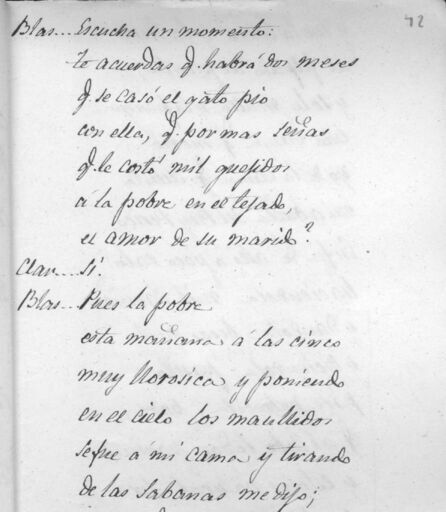 42
Blas... Escucha un momento:
to acuerdas q. habrá dos meses
q. se casó el gato pio
con ella, q. por mas señas
q. le costó mil quejidos
á la pobre en el tejado,
el amor de su marido?
Clar... Sí.
Blas... Pues la pobre
esta mañana á las cinco
muy llorosica y poniendo
en el cielo los maullidos
se fue a mi cama y tirando
de las sabanas me dijo;